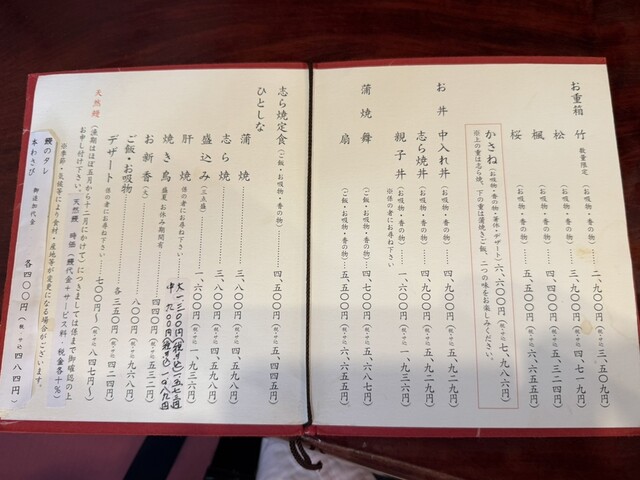 お重箱 竹 数量限定 (お吸物・香の物)……二、九〇〇円(税・サ込 三、五〇九円)
松 (お吸物・香の物)……三、九〇〇円(税・サ込 四、七一九円)
楓 (お吸物・香の物)……四、四〇〇円(税・サ込 五、三二四円)
桜 (お吸物・香の物)……五、五〇〇円(税・サ込 六、六五五円)
かさね(お吸物・香の物・箸休・デザート)六、六〇〇円(税・サ込 七、九八六円)
※上の重は志ら焼、下の重は蒲焼きご飯、二つの味をお楽しみください。
お丼 中入れ丼(お吸物・香の物)……四、九〇〇円(税・サ込 五、九二九円)
志ら焼丼(お吸物・香の物)……四、九〇〇円(税・サ込 五、九二九円)
親子丼(お吸物・香の物)……一、六〇〇円(税・サ込 一、九三六円)
※係の者にお尋ね下さい
蒲焼舞 (ご飯・お吸物・香の物)……四、七〇〇円(税・サ込 五、六八七円)
扇 (ご飯・お吸物・香の物)……五、五〇〇円(税・サ込 六、六五五円)
志ら焼定食(ご飯・お吸物・香の物)……四、五〇〇円(税・サ込 五、四四五円)
ひとしな
蒲焼……三、八〇〇円(税・サ込 四、五九八円)
志ら焼……三、八〇〇円(税・サ込 四、五九八円)
盛込み(三点盛)……一、六〇〇円(税・サ込 一、九三六円)
肝焼 係の者にお尋ね下さい 大 一、三〇〇円(税サ込)一、五七三円
中 九〇〇円(税サ込)
焼き鳥 盛夏お休み期間有……四四〇円(税・サ込 五三二円)
お新香(大)……八〇〇円(税・サ込 九六八円)
ご飯・お吸物……各三五〇円(税・サ込 四二四円)
デザート 係の者にお尋ね下さい……七〇〇円〜(税・サ込 八四七円〜)
天然鰻 (漁期はほぼ五月から十二月にかけて)につきましては係まで御確認の上
お申し付け下さい。天然鰻 時価(鰻代金+サービス料 税金各十%)
※季節・気候等により食材・産地等が変更になる場合がございます。
鰻のタレ
本わさび 御追加代金 各四〇〇円(税・サ込 四八四円)